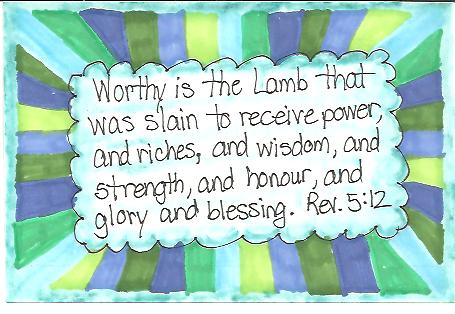 Worthy is the Lamb that
was slain to receive power,
and riches, and wisdom, and
strength, and honour, and
glory and blessing. Rev. 5:12